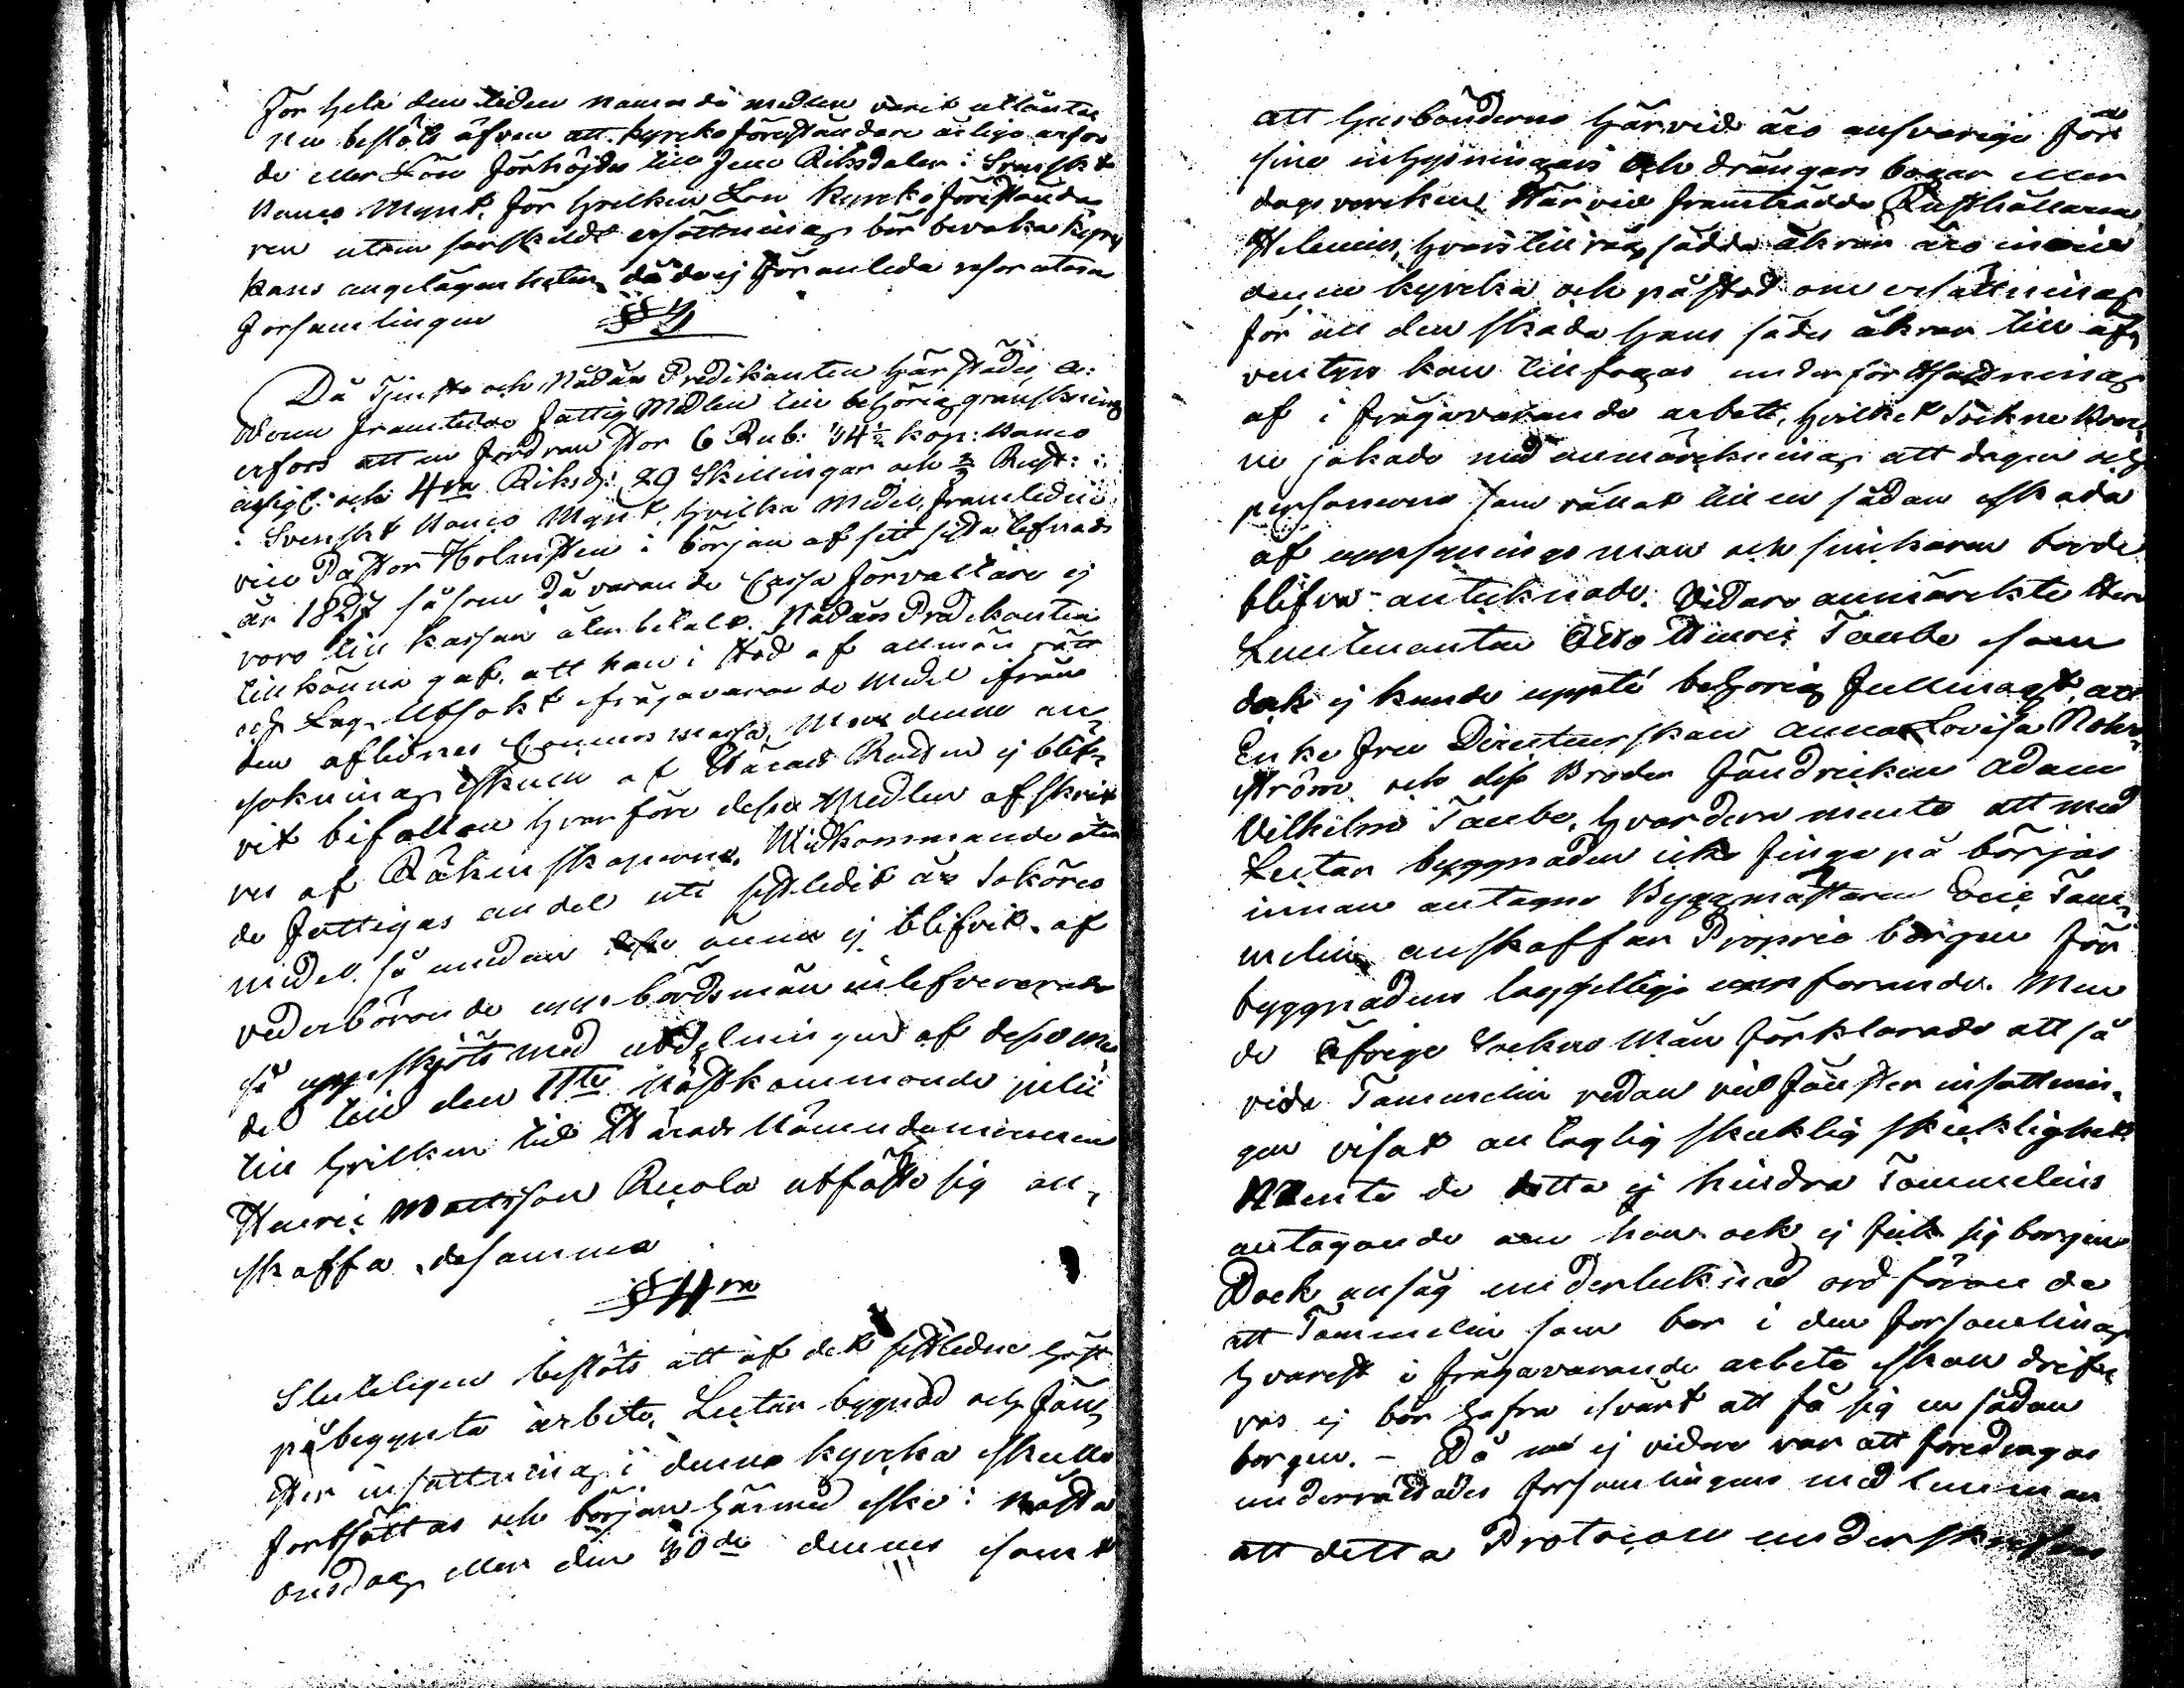 för hela den tiden namnda medlen varit utlånta
nu beslöts äfven att kyrko föreståndare årliga arfvo
de eller Lön förhöjdes till fem Riksdaler i Svenskt
Banco Mynt, för hvilken Lön kyrko förestånda
ren utom särskildt ersättning bör bevaka kyr
kans angelägenheter, då de ej föranleda resor utom
församlingen
§ 3
Då Tjenste och Nådårs Predikanten härstädes, A:
Wenn framtedde fattig Medlen till behörig granskning
erfors att en fordran stor 6 Rub: 14½ kop: Banco
assign: och 4ra Riksd: 29 Skillingar och ⅔ Rust:
i Svenskt Banco Mynt, hvilka Medel, framledne
vice Pastor Holmsten i början af sitt sista lefnads
år 1827 såsom då varande Cassa förvaltare ej
voro till kassan återbetalt. Nådårs Predikanten
tillkänna gaf, att han i stöd af allmän rätt
och Lag, utsökt ifrågavarande Medel ifrån
den aflidnes Concurs massa, Men denne an
sökning skall af Härads Rätten ej blif
vit bifallen hvarföre dessa Medlen afskrif
ves af Räkenskaperne. Widkommande åter
de fattigas andel uti sistledit år Saköres
medel, så emedan desse ännu ej blifvit af
vederbörande uppbördsmän inlefvererade
så uppskjöts med utdelningen af desse me
del till den 1ste nästkommande julii
till hvilken tid Härads Nämndemannen
Henric Mattsson Ruola utfäste sig an
skaffa desamma
§ 4ra
Sluteligen beslöts att af det sistledne höst
påbegynta arbete, Lectar byggnad och fön
ster insättning i denna kyrka skulle
fortsättas och början härmed ske: nästa
onsdag eller den 30de dennes samt
att husbönderne härvid äro ansvarige för
sine inhysningars och drängars bogar eller
dagsverken. Härvid framträdde Rusthållaren
Helenius, hvars till råg sådda åkrar äro invid
denna kyrka och påstod om ersättning
för all den skada hans sådes åkrar till äf
ventyrs kan tillfogas under fortsättning
af i frågavarande arbett, hvilket Sockne
ne jakade med anmärkning att dagen och
personerne som vållat till en sådan skada
af uppsynings man och snickaren borde
blifva antecknade. Vidare anmärkte Herr
Lieutenanten Otto Henric Taube som
dock ej kunde uppte behörig fullmagt, att
Enke fru Directeurskan Anna Lovisa Nohr
ström och dess Broder fändricken Adam
Vilhelm Taube, hvardera mente att med
Lectar byggnaden icke finge på börjas
innan antagne Byggmästaren Eric Tam
melin anskaffar Proprie borgen för
byggnadens lagfellige uppförande. Men
de öfrige Sockne Män förklarade att så
vida Tammelin redan vid fönster insättnin
gen visat en laglig skicklighet
Mente de detta ej hindra Tammelins
antagande om han ock ej fick sig borgen
Dock ansåg undertecknad ordförande
att Tammelin som bor i den församling
hvarest i frågavarande arbete skall drif
vas ej bör hafva svårt att få sig en sådan
borgen. – Då nu ej vidare var att föredragas
underrättades församlingens medlemmar
att detta Protocoll underskrifves